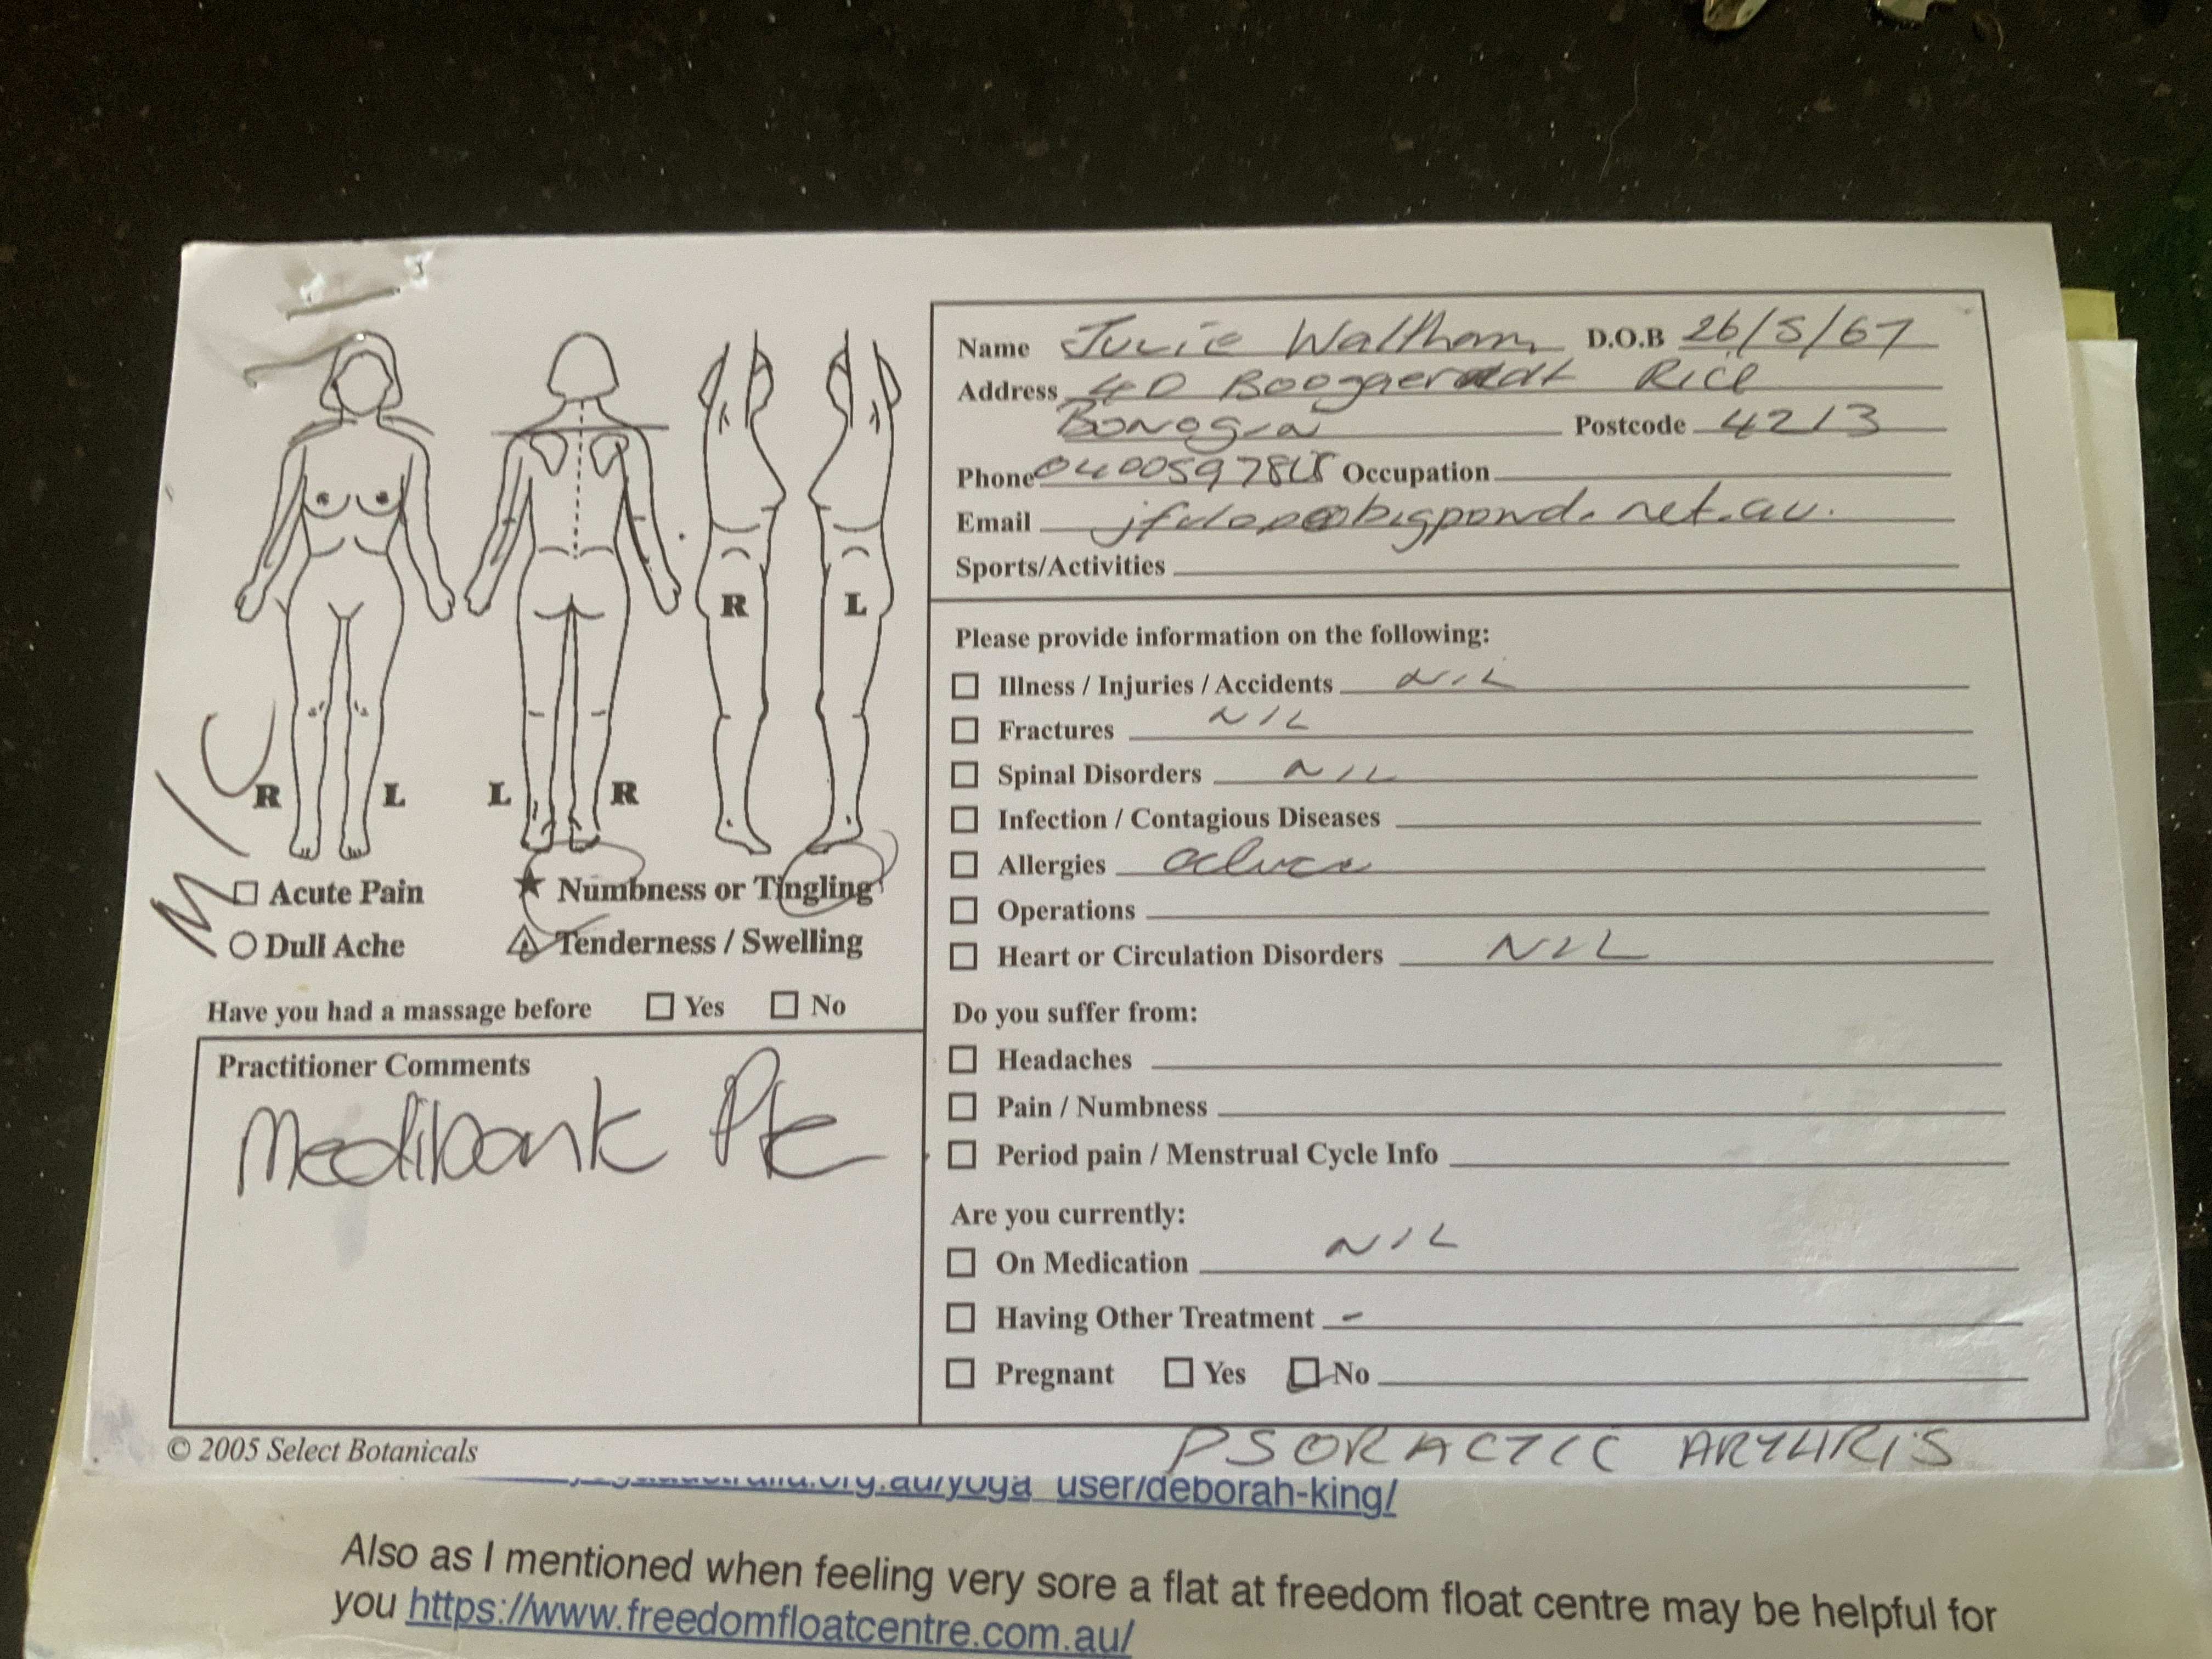 Name Julie Waltham D.O.B 26/5/67
Address 40
Bonogin Postcode 4213
Phone Occupation
Email bigpond.net.au.
Sports/Activities
Please provide information on the following:
Illness / Injuries / Accidents NIL
Fractures NIL
Spinal Disorders NIL
Infection / Contagious Diseases
Allergies
Operations
Heart or Circulation Disorders NIL
Do you suffer from:
Headaches
Pain / Numbness
Period pain / Menstrual Cycle Info
Are you currently:
On Medication NIL
Having Other Treatment -
Pregnant Yes No
PSORACTIC ARYHRIS
R L L R R L
M/C
Acute Pain Numbness or Tingling
Dull Ache Tenderness / Swelling
Have you had a massage before Yes No
Practitioner Comments
Medibank Pte
© 2005 Select Botanicals
user/deborah-king/
Also as I mentioned when feeling very sore a flat at freedom float centre may be helpful for
you https://www.freedomfloatcentre.com.au/